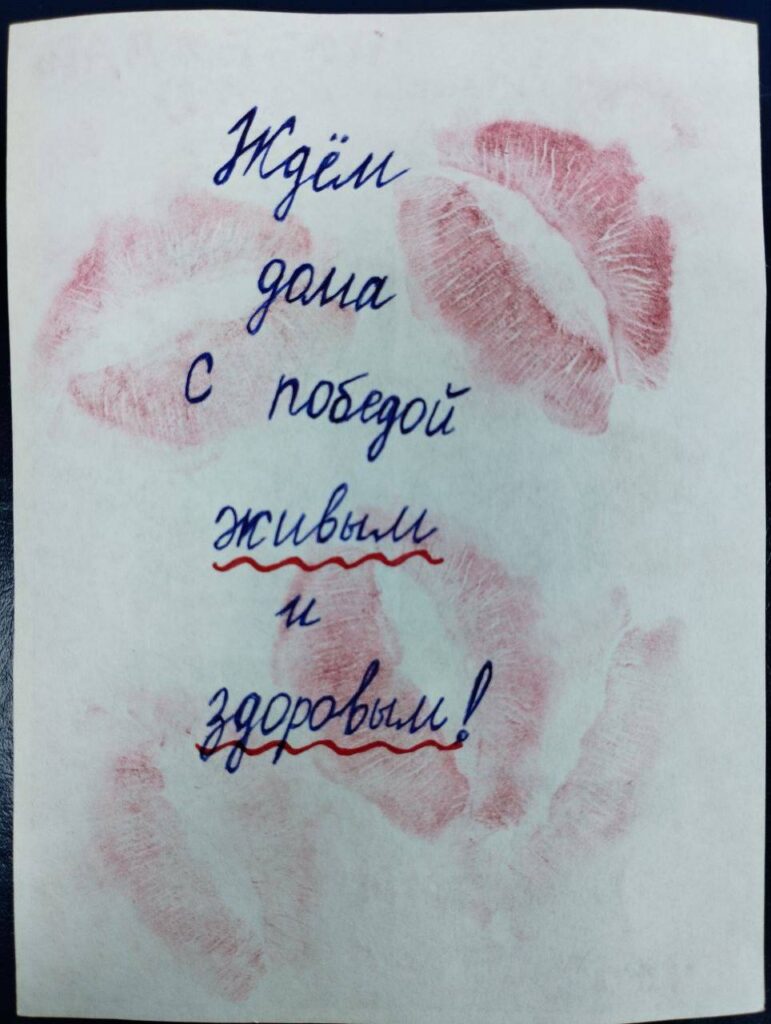 Ждём
дома
с победой
живым
и
здоровым!